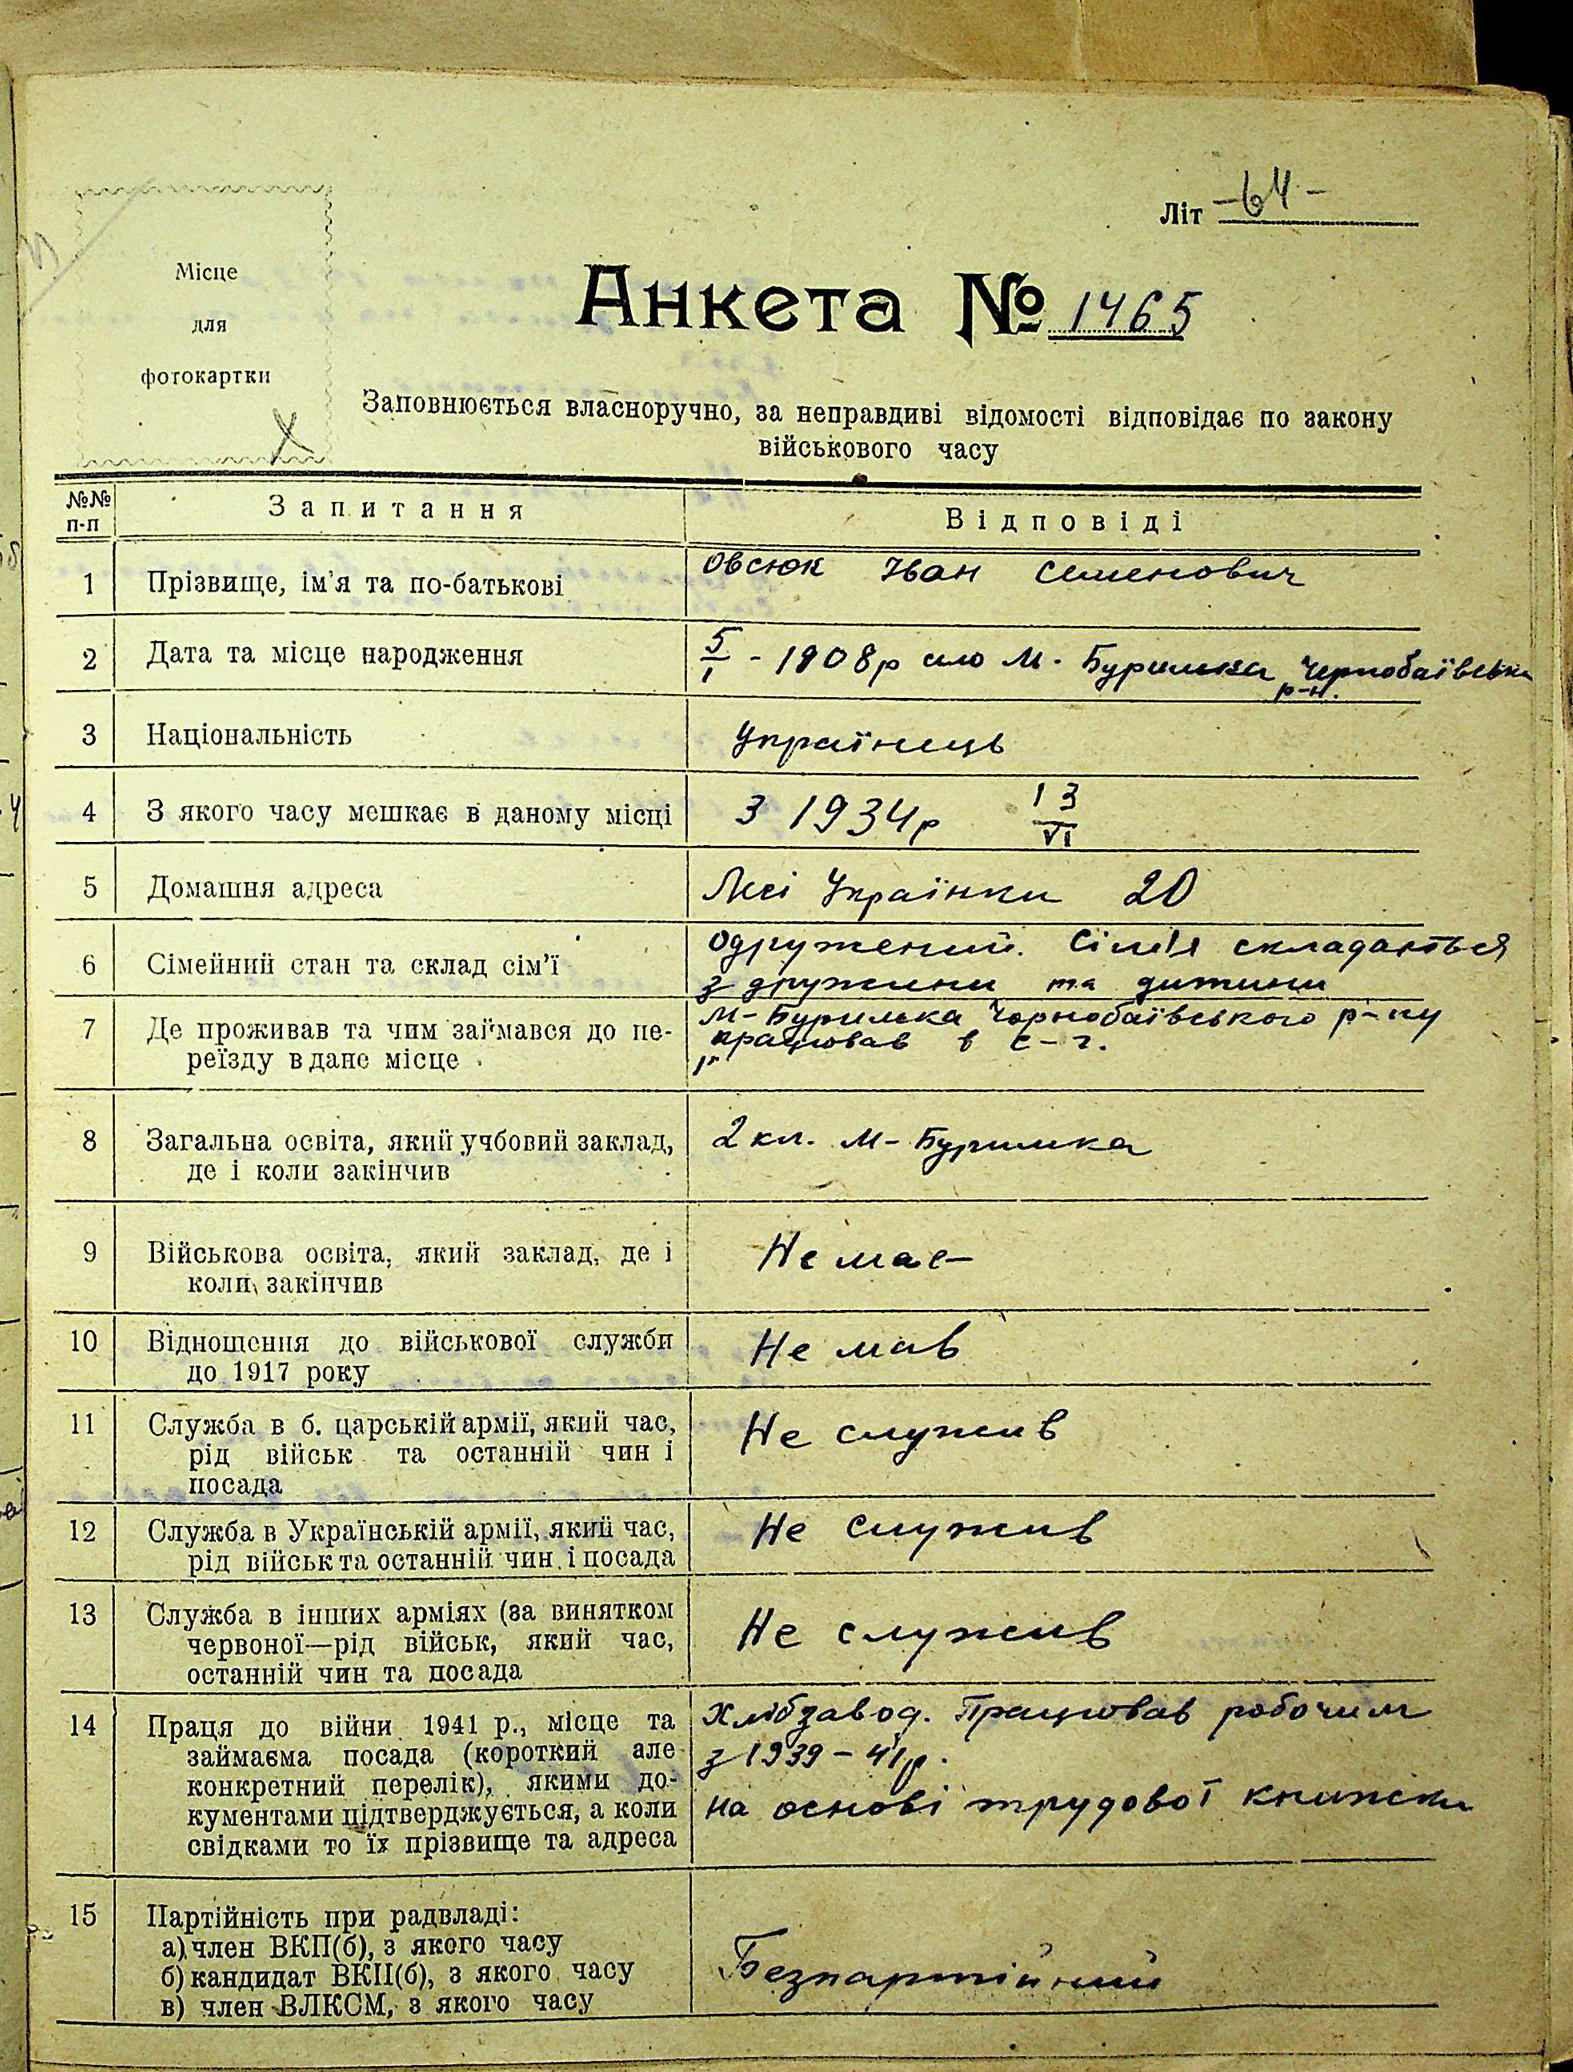 Літ -64-
Місце
для
фотокартки
Анкета № 1465
Заповнюється власноручно, за неправдиві відомості відповідає по закону
військового часу
№№ п-п Запитання Відповіді
1 Прізвище, ім'я та по-батькові Овсюк Іван Семенович
2 Дата та місце народження 5/I - 1908р село М. Буримка Чорнобаївськ
р-н.
3 Національність Українець
4 З якого часу мешкає в даному місці З 1934р 13/VI
5 Домашня адреса Лесі Українки 20
6 Сімейний стан та склад сім'ї Одружений. Сім'я складається
з дружини та дитини
7 Де проживав та чим займався до пе-
реїзду в дане місце
М-Буримка Чорнобаївського р-ну
працював в с-г.
8 Загальна освіта, який учбовий заклад,
де і коли закінчив
2 кл. М-Буримка
9 Військова освіта, який заклад, де і
коли закінчив
Не має
10 Відношення до військової служби
до 1917 року
Не мав
11 Служба в б. царській армії, який час,
рід військ та останній чин і
посада
Не служив
12 Служба в Українській армії, який час,
рід військ та останній чин і посада
Не служив
13 Служба в інших арміях (за винятком
червоної—рід військ, який час,
останній чин та посада
Не служив
14 Праця до війни 1941 р., місце та
займаєма посада (короткий але
конкретний перелік), якими до-
кументами підтверджується, а коли
свідками то їх прізвище та адреса
Хлібзавод. Працював робочим
з 1939-41р.
на основі трудової книжки
15 Партійність при радвладі:
а) член ВКП(б), з якого часу
б) кандидат ВКП(б), з якого часу
в) член ВЛКСМ, з якого часу
Безпартійний